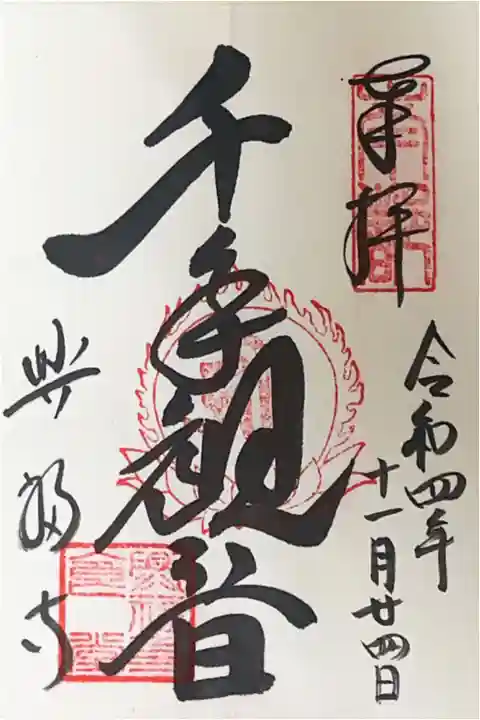 奉拝
令和四年
十一月廿四日
千手観音
興福寺